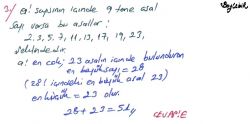 2/ a! sayısının içinde 9 tane asal
sayı varsa bu asallar:
2, 3, 5, 7, 11, 13, 17, 19, 23,
şeklindedir.
a! en çok; 23 asalın içinde bulunduran
en büyük sayı = 28
(28! içindeki en büyük asal 23)
en küçük = 23 olur.
28 + 23 = 51
CEVAP: E